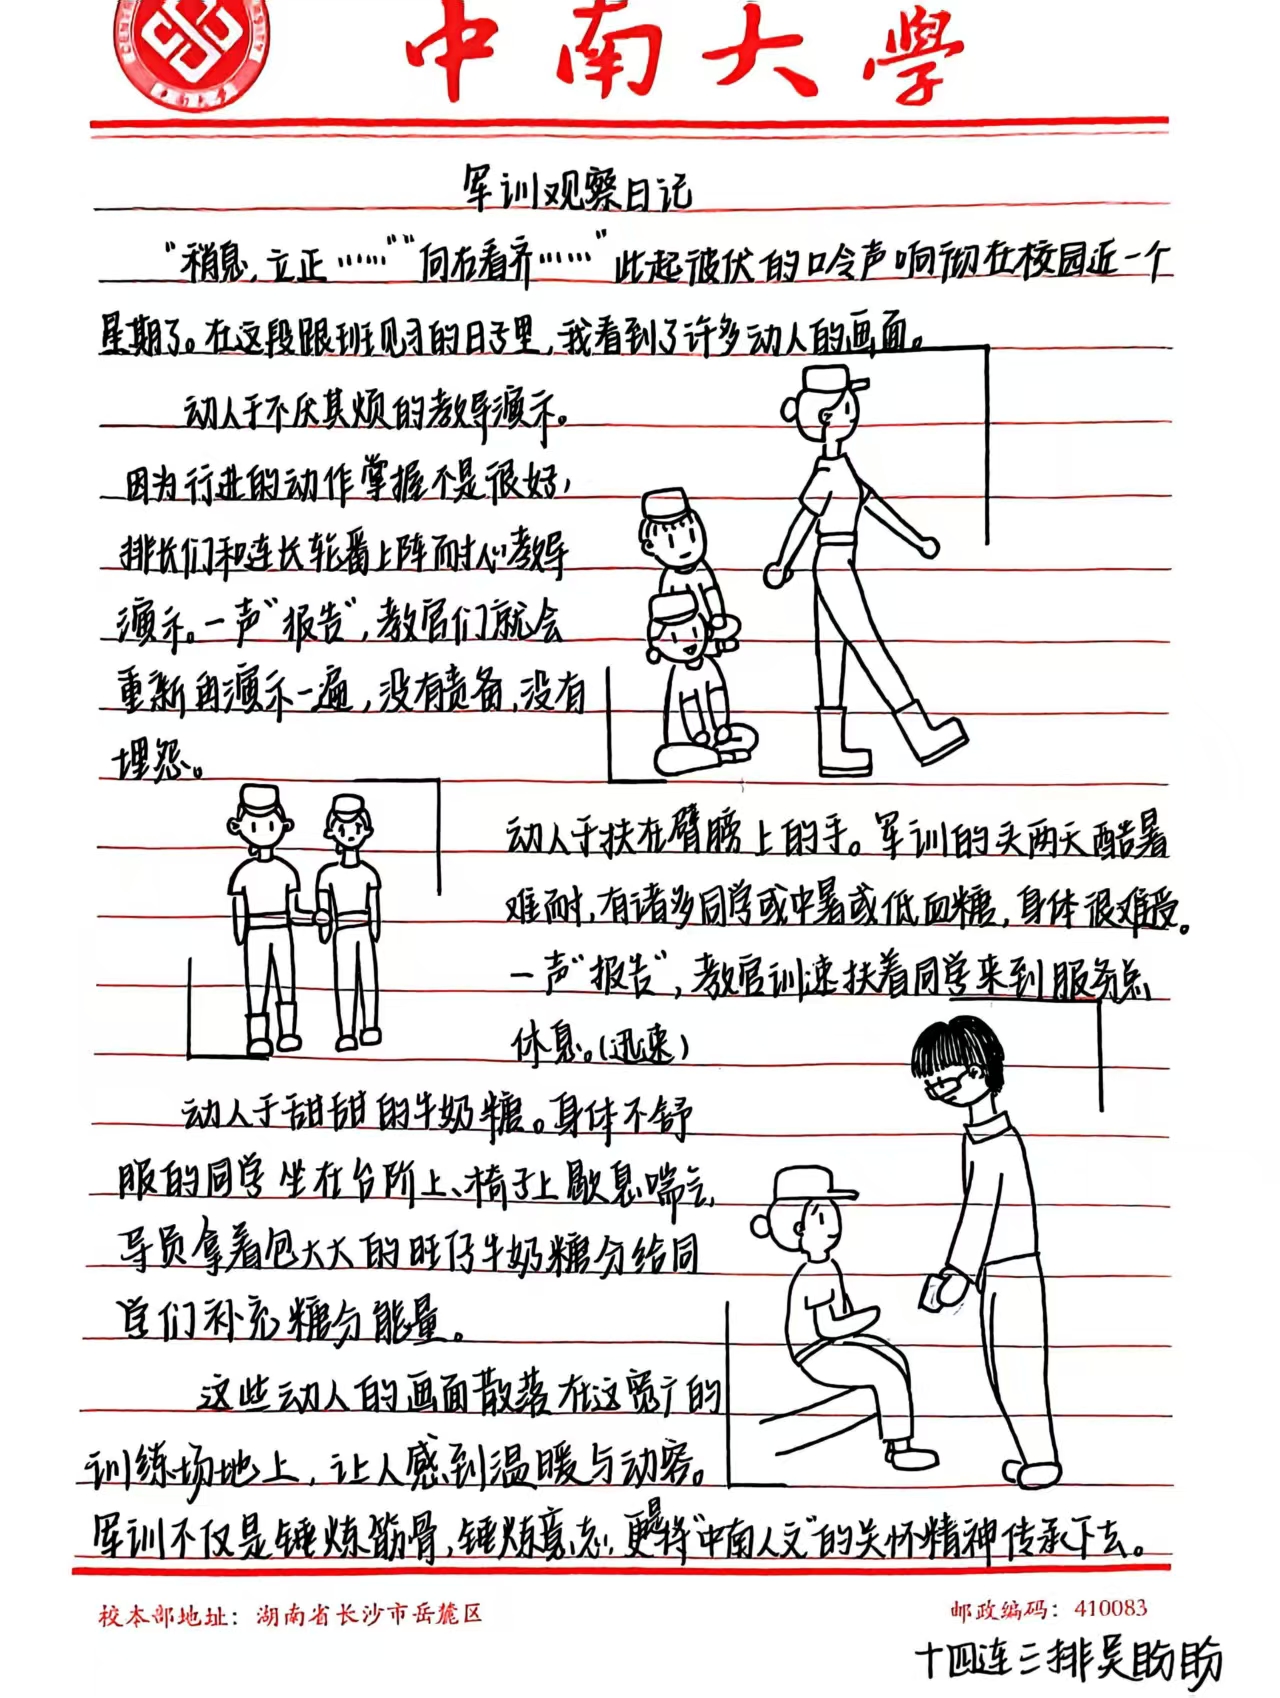 中南大学
中南大学
军训观察日记
“稍息，立正……”“向右看齐……”此起彼伏的口令声响彻在校园近一个
星期了。在这段跟班见习的日子里，我看到了许多动人的画面。
动人于不厌其烦的教导演示。
因为行进的动作掌握不是很好，
排长们和连长轮番上阵耐心教导
演示。一声“报告”，教官们就会
重新再演示一遍，没有责备，没有
埋怨。
动人于扶在臂膀上的手。军训的头两天酷暑
难耐，有诸多同学或中暑或低血糖，身体很难受。
一声“报告”，教官训速扶着同学来到服务点
休息。（迅速）
动人于甜甜的牛奶糖。身体不舒
服的同学坐在台阶上、椅子上歇息喘气，
导员拿着包大大的旺仔牛奶糖分给同
学们补充糖分能量。
这些动人的画面散落在这宽广的
训练场地上，让人感到温暖与动容。
军训不仅是锤炼筋骨，锤炼意志，更是将“中南人文”的关怀精神传承下去。
校本部地址：湖南省长沙市岳麓区
邮政编码：410083
十四连三排吴盼盼